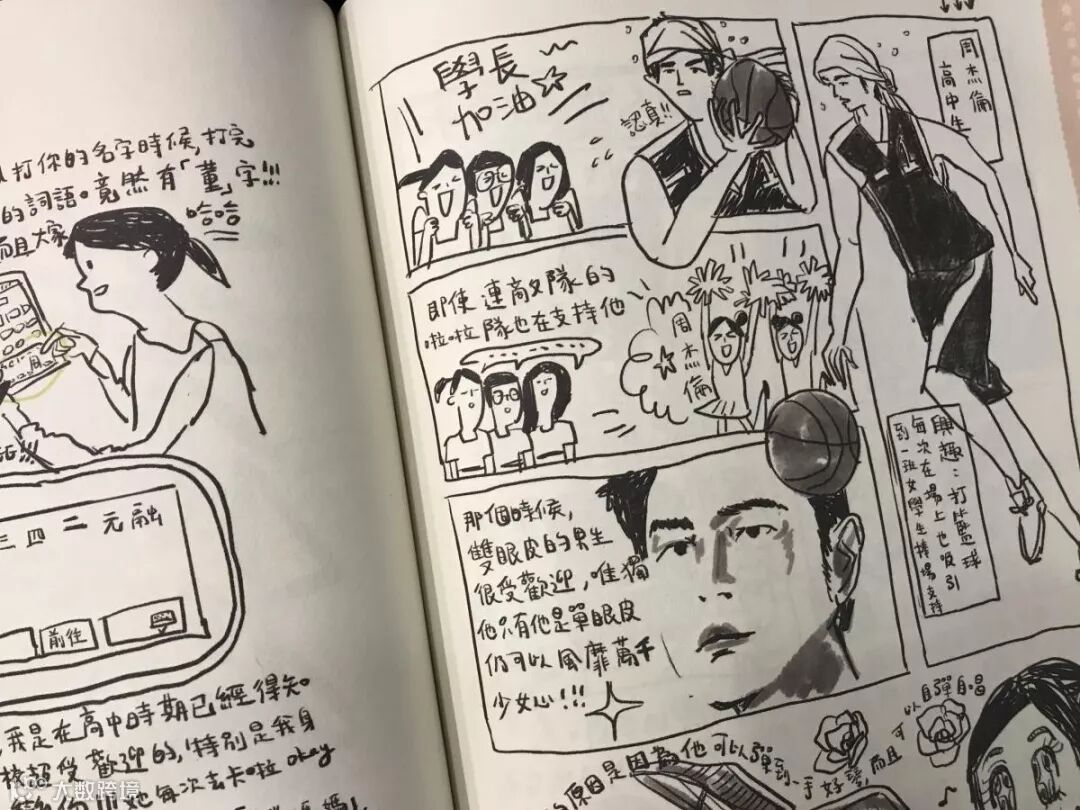 打你的名字時候,打完
的詞語。竟然有「董」字!!!
而且大家
哈哈
三 四 二 元 融
前往
我是在高中時期已經得知
歡迎的,特別是我身
他每次去卡啦 okay
學長
加油☆
認真!!
周杰倫
高中生
即使 連敵隊的
啦啦隊也在支持他
周杰倫
興趣:打籃球
每次在場上也吸引
到一班女學生捧場支持
那個時候,
雙眼皮的男生
很受歡迎,唯獨
他只有他是單眼皮
仍可以風靡萬千
少女心!!!
自彈自唱
可以
原因是因為他可以彈到一手好琴,而且
大数跨境